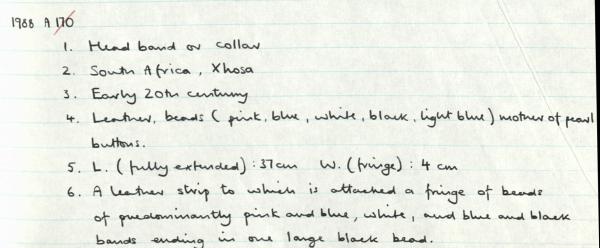 1988 A 170
1. Head band or collar
2. South Africa, Xhosa
3. Early 20th century
4. Leather, beads (pink, blue, white, black, light blue) mother of pearl
buttons.
5. L. (fully extended): 37cm W. (fringe): 4 cm
6. A leather strip to which is attached a fringe of beads
of predominantly pink and blue, white, and blue and black
bands ending in one large black bead.